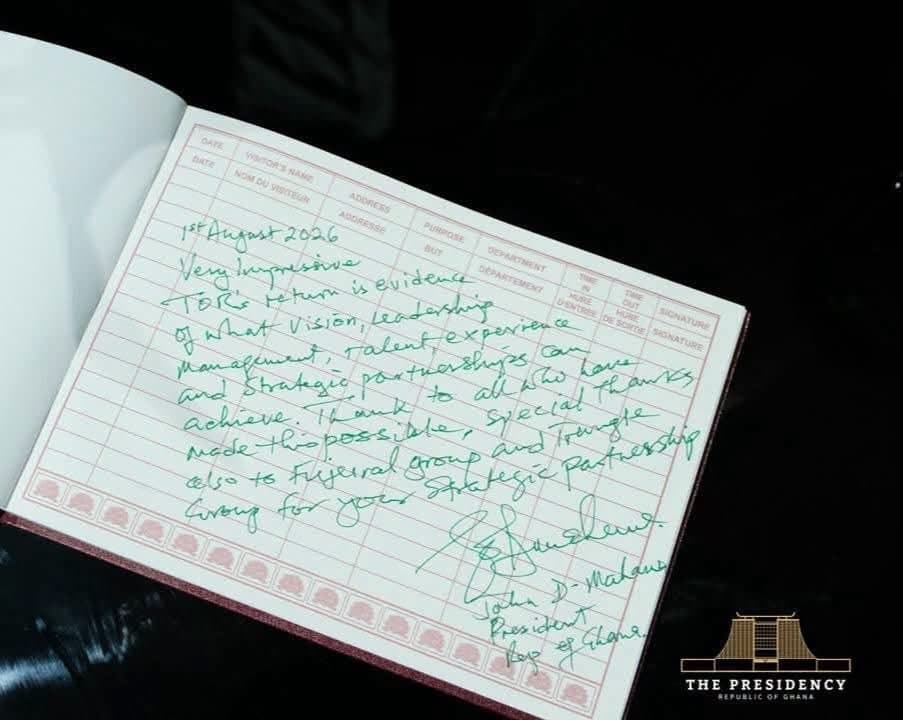 DATE VISITOR'S NAME ADDRESS PURPOSE DEPARTMENT TIME IN TIME OUT SIGNATURE
DATE NOM DU VISITEUR ADDRESSE BUT DÉPARTEMENT HURE D'ENTREE HURE DE SORTIE SIGNATURE
1st August 2026
Very Impressive
TOR's return is evidence
of what Vision, Leadership
Management, Talent, experience
and Strategic partnerships can
achieve. Thank to all who have
made this possible, Special Thanks
also to Fujeiral group and Triangle
Group for your Strategic partnership
John D. Mahama
President
Rep of Ghana.
THE PRESIDENCY
REPUBLIC OF GHANA